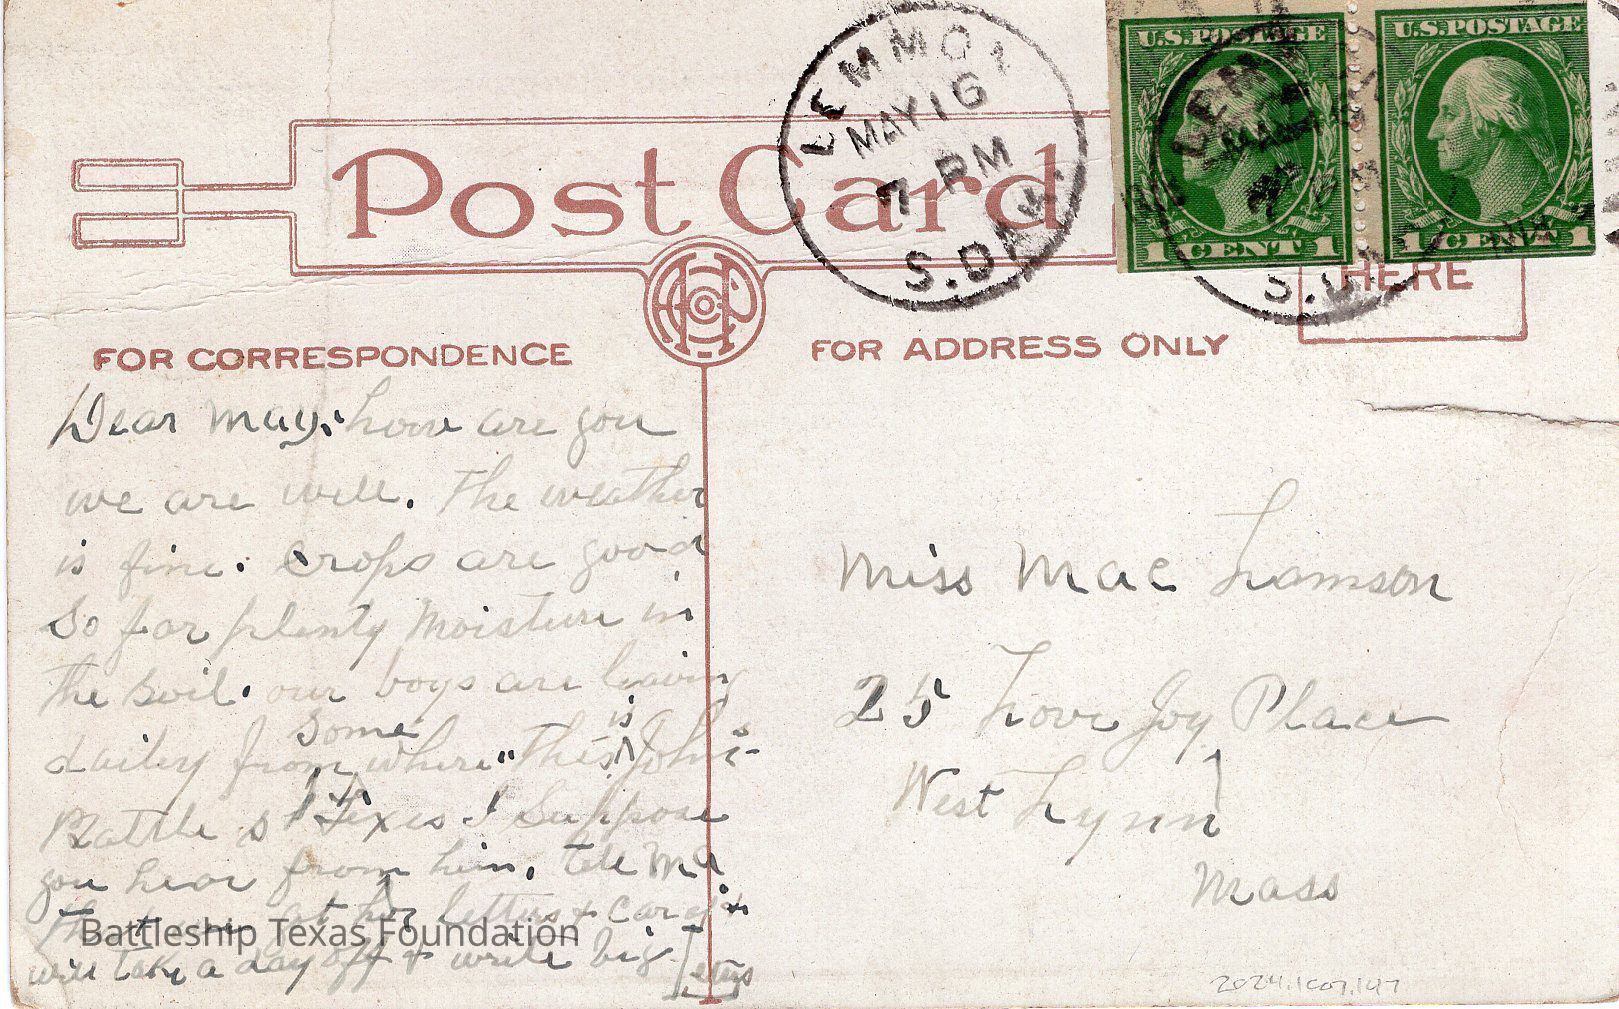 LEMMON
MAY 16
7 PM
S. DAK.
U.S. POSTAGE
1 CENT 1
U.S. POSTAGE
1 CENT 1
Post Card
HERE
FOR CORRESPONDENCE
FOR ADDRESS ONLY
Dear May. how are you
we are well. The weather
is fine. Crops are good
So far plenty Moisture in
the soil. our boys are leaving
dailey from some where "this is John's
Battle s Texas I Suppose
you hear from him. tell Ma
that we got her letters + cards +
will take a day off + write big letters
Miss Mae Lamson
25 Love Joy Place
West Lynn
Mass
Battleship Texas Foundation
2024.1007.147